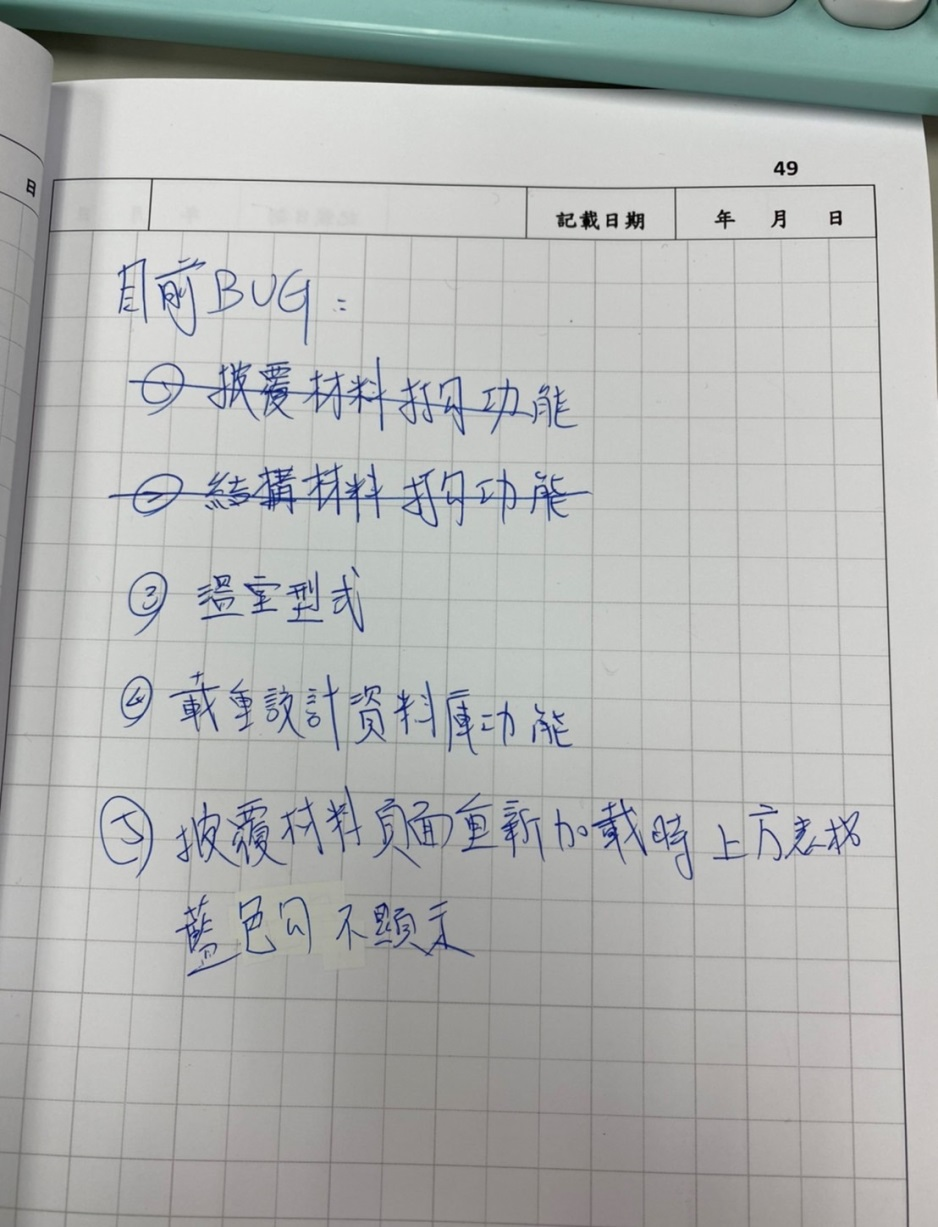 49
日
記載日期 年 月 日
目前BUG:
① 披覆材料打勾功能
② 結構材料打勾功能
③ 溫室型式
④ 載重設計資料庫功能
⑤ 披覆材料頁面重新加載時上方表格
藍色勾不顯示